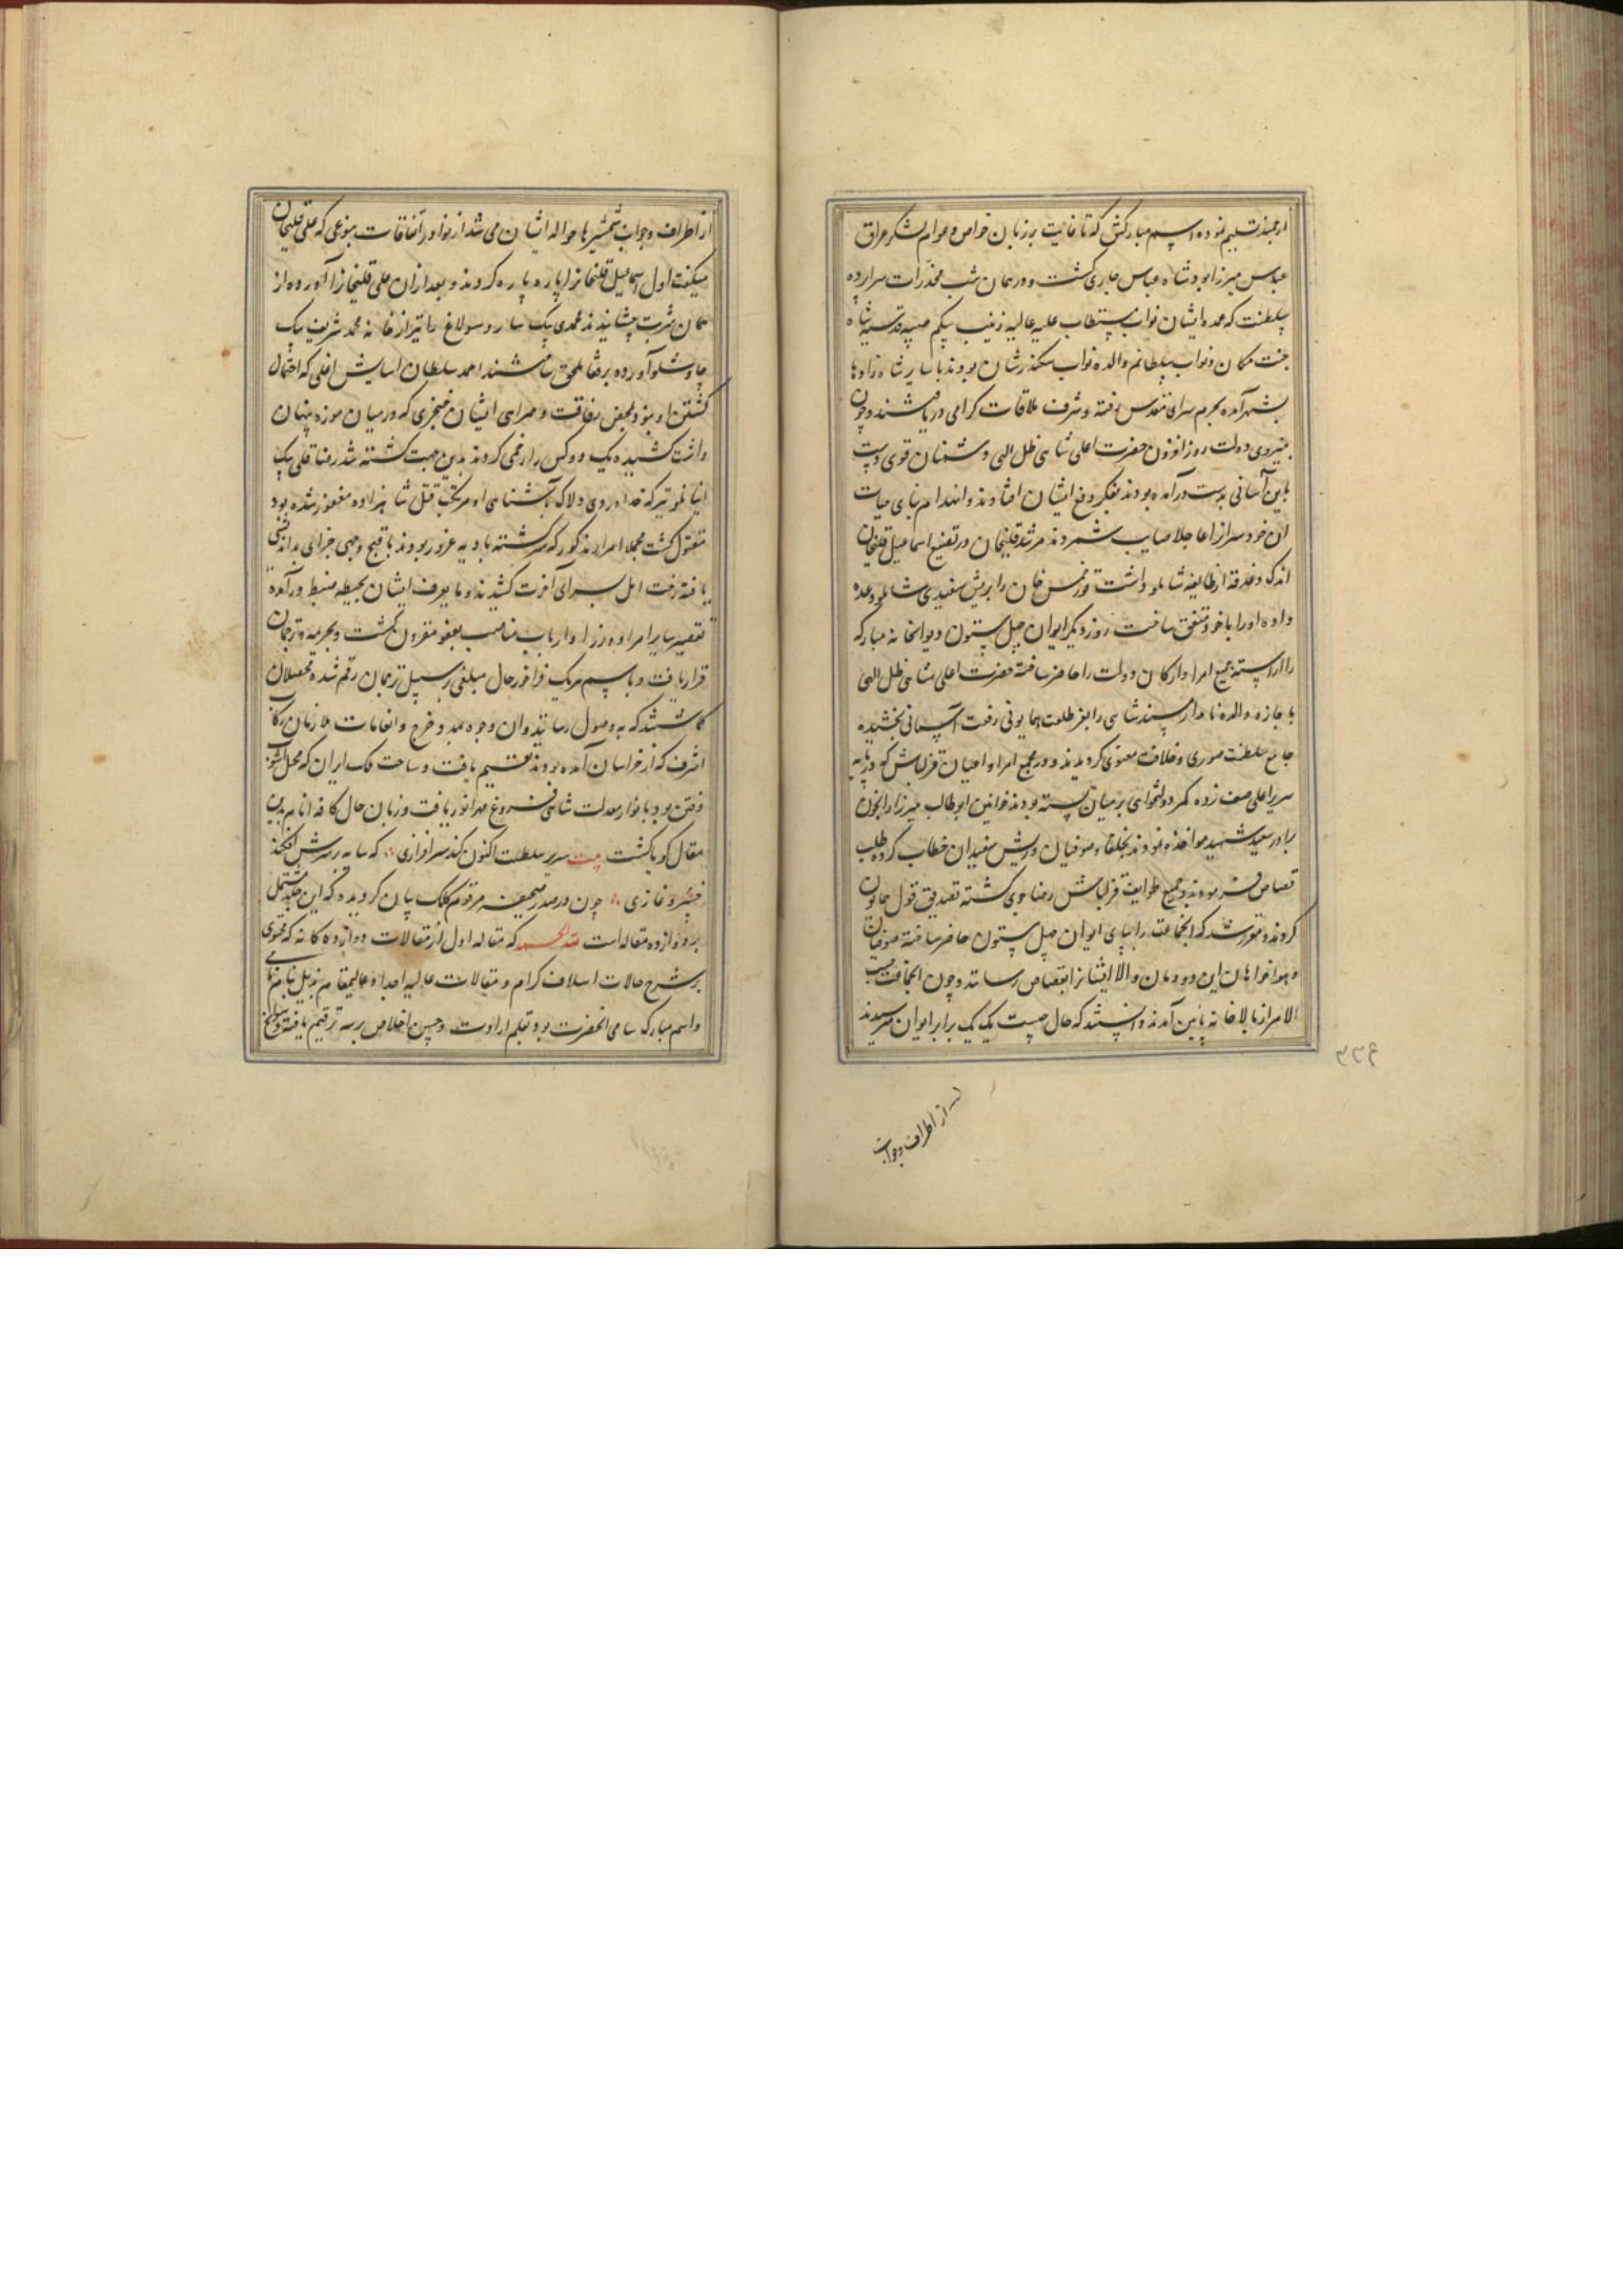 ارجمند تسلیم نموده اسم مبارکش که تا غایت بر زبان خواص و عوام لشکر عراق
عباس میرزا بود شاه عباس جاری گشت و در همان شب مخدرات سرارده
سلطنت که عمده ایشان نواب مستطاب علیه عالیه زینب بیکم صبیه قدسیه شاه
جنت مکان و نواب سلطانم والده نواب سکندر شان بودند با سایر شاه زادها
بشهر آمده بحرم سرای مقدس رفته و شرف ملاقات کرامی دریافتند و چون
بنیروی دولت روز افزون حضرت اعلی شاهی ظل الهی دشمنان قوی دست
باین آسانی بدست درآمده بودند بفکر دفع ایشان افتادند و انهدام بنای حیات
آن خودسر از اعاجلا صایب شمردند مرشد قلیخان در تضییع اسماعیل قلیخان
اندک دغدغه از طایفه شاملو داشت قورخمس خان را بریش سفیدی شاملو وعده
داده او را با خود متفق ساخت روز دیکر ایوان چهل ستون دیوانخانه مبارکه
را اراسته جمیع امرا و ارکان دولت را حاضر ساخته حضرت اعلی شاهی ظل الهی
با جازه والده نامدار مسند شاهی را بفر طلعت همایونی رفعت آسمانی بخشیده
جامع سلطنت صوری و خلافت معنوی کردیدند و در مجمع امرا و اعیان قزلباش که در پایه
سریر اعلی صف زده کمر دولتخواهی بر میان بسته بودند خوانین ابو طالب میرزا را بخون
برادر سعید شهید مواخذه نمودند بخلفا و صوفیان و ریش سفیدان خطاب کرده طلب
قصاص فرمودند و جمیع طوایف قزلباش رضا جوی کشته تصدیق قول همایون
کردند و مقرر شد که انجماعت را بپای ایوان چهل ستون حاضر ساخته صوفیان
و هواخواهان این دودمان والا ایشانرا بقصاص رسانند و چون انجماعت حسب
الامر از بالاخانه پائین آمدند دانستند که حال چیست یک یک برابر ایوان میرسیدند
۳۳۶
از اطراف و جوانب
از اطراف و جوانب شمشیرها حواله ایشان می شد از نوادر اتفاقات بنوعی که علی قلیخان
میکفت اول اسماعیل قلیخانرا پاره پاره کردند و بعد از آن علی قلیخانرا آورده از
همان شربت چشانیدند محمدی بیک ساروسولاغ را نیز از خانه محمد شریف بیک
چاوشلو آورده برفقا ملحق ساختند احمد سلطان اسایش اغلی که احتمال
کشتن او نبود بمحض رفاقت و همراهی ایشان خنجری که در میان موزه پنهان
داشت کشیده یک دو کس را زخمی کردند بدین جهت کشته شد رضا قلی بیک
اینانلو نیز که خداوردی دلاک بآشنایی او مرتکب قتل شاهزاده مغفور شده بود
مقتول کشت مجملا امراء مذکور که سرکشته بادیه غرور بودند باقبح وجهی جزای بد اندیشی
یافته رخت امل بسرای آخرت کشیدند و ما یعرف ایشان بحیطه ضبط درآمده
تقصیر سایر امرا و وزرا و ارباب مناصب بعفو مقرون کشت و بجریمه و ترجمان
قرار یافت و باسم هریک فراخور حال مبلغی برسبیل ترجمان رقم شده محصلان
کماشتند که به وصول رسانیدند و ان وجوه بمدد خرج و انعامات ملازمان رکاب
اشرف که از خراسان آمده بودند تقسیم یافت و ساحت ملک ایران که محل آشوب
و فتن بود بانوار معدلت شاهی فروغ مهر انور یافت و زبان حال کافه انام بدین
مقال کویا کشت بیت سریر سلطنت اکنون کند سرافرازی که سایه بر سرش افکند
خسرو غازی چون در صدر صحیفه مرقوم کلک بیان کردیده که این جلد مشتمل
بر دوازده مقاله است لله الحمد که مقاله اول از مقالات دوازده کانه که محتوی
بر شرح حالات اسلاف کرام و مقالات عالیه اجداد عالیمقام بذیل نام نامی
و اسم مبارک سامی انحضرت بود بقلم ارادت و حسن اخلاص برسه ترقیم یافته و سوانح